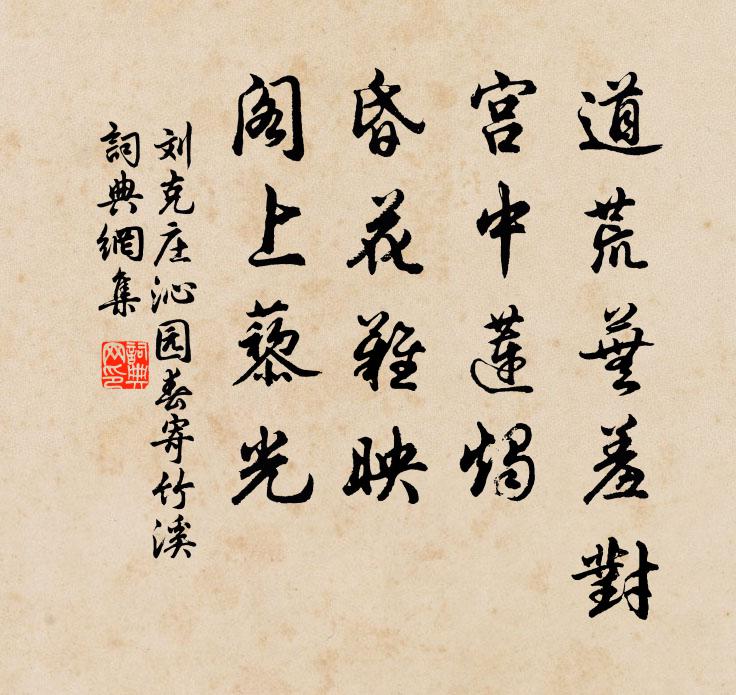 道荒蕪羞對
宫中莲燭
昏花難映
阁上藜光
刘克庄沁园春寄竹溪
詞典網集
詞典网印